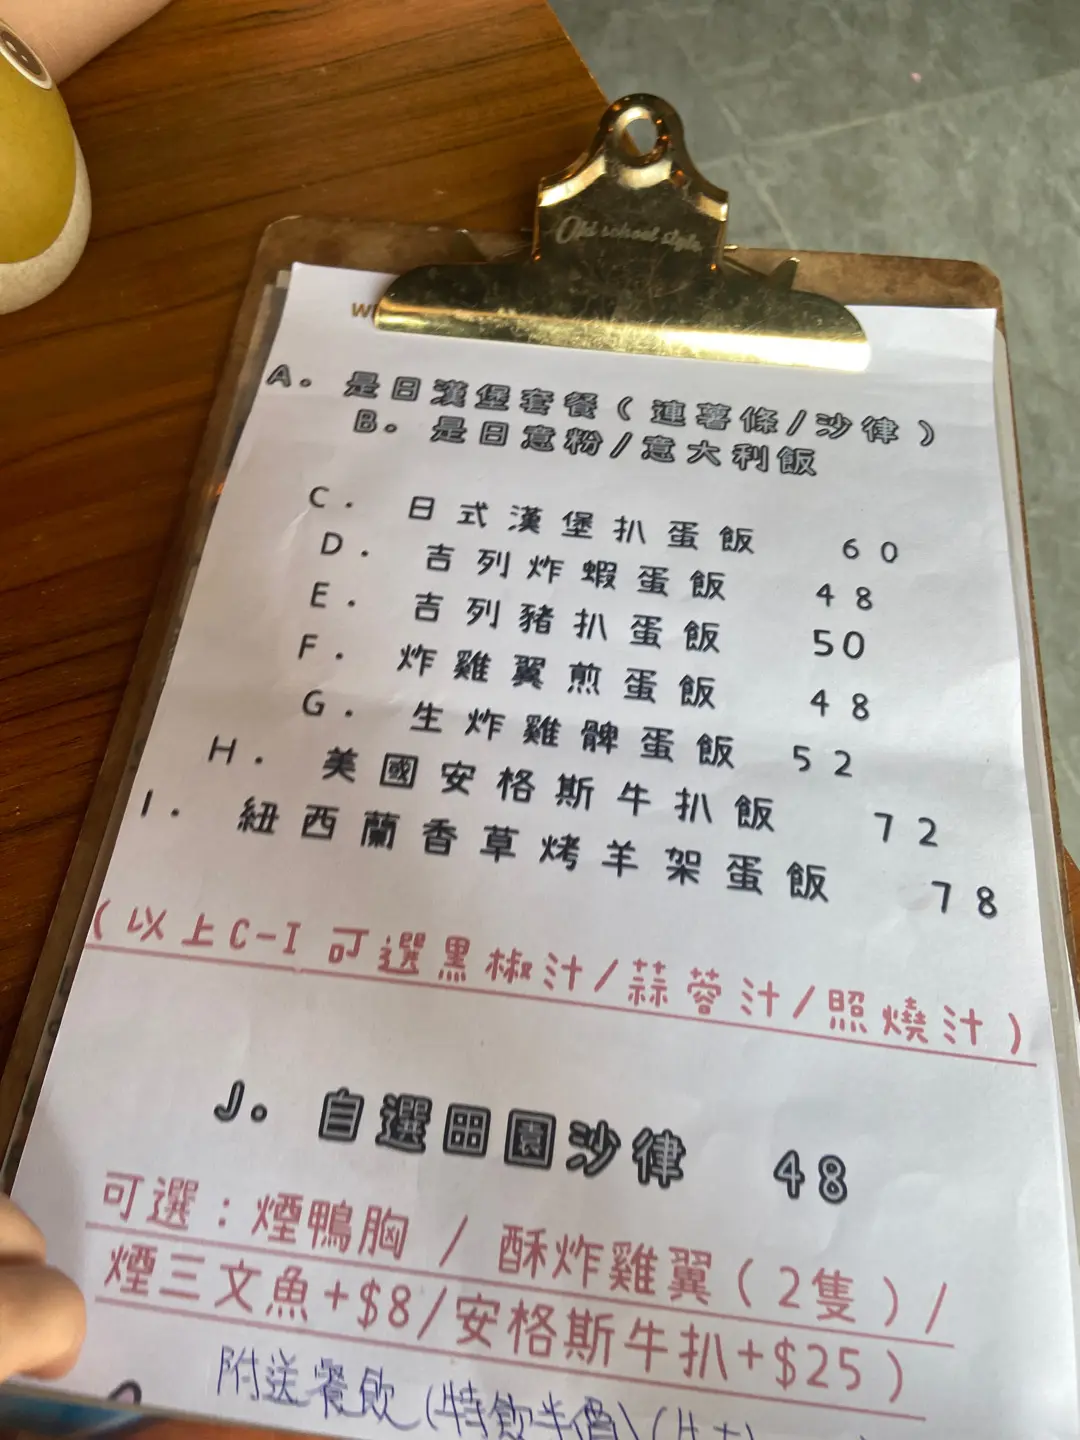 Old school style
A。是日漢堡套餐(連薯條/沙律)
B。是日意粉/意大利飯
C. 日式漢堡扒蛋飯 60
D. 吉列炸蝦蛋飯 48
E. 吉列豬扒蛋飯 50
F. 炸雞翼煎蛋飯 48
G. 生炸雞髀蛋飯 52
H. 美國安格斯牛扒飯 72
I. 紐西蘭香草烤羊架蛋飯 78
(以上C-I可選黑椒汁/蒜蓉汁/照燒汁)
J。自選田園沙律 48
可選:煙鴨胸 / 酥炸雞翼(2隻)/
煙三文魚+$8/安格斯牛扒+$25)
附送餐飲(特飲半價)